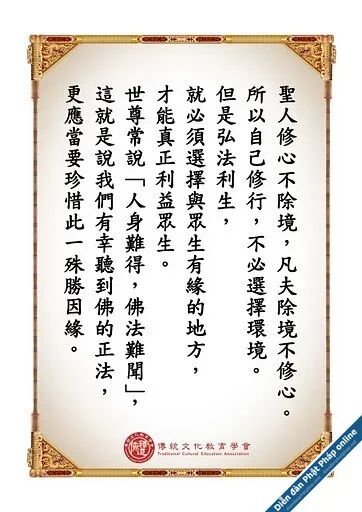 聖人修心不除境，凡夫除境不修心。
所以自己修行，不必選擇環境。
但是弘法利生，
就必須選擇與眾生有緣的地方，
才能真正利益眾生。
世尊常說「人身難得，佛法難聞」，
這就是說我們有幸聽到佛的正法，
更應當要珍惜此一殊勝因緣。
傳統文化教育學會
Traditional Cultural Education Association
Diễn đàn Phật Pháp online